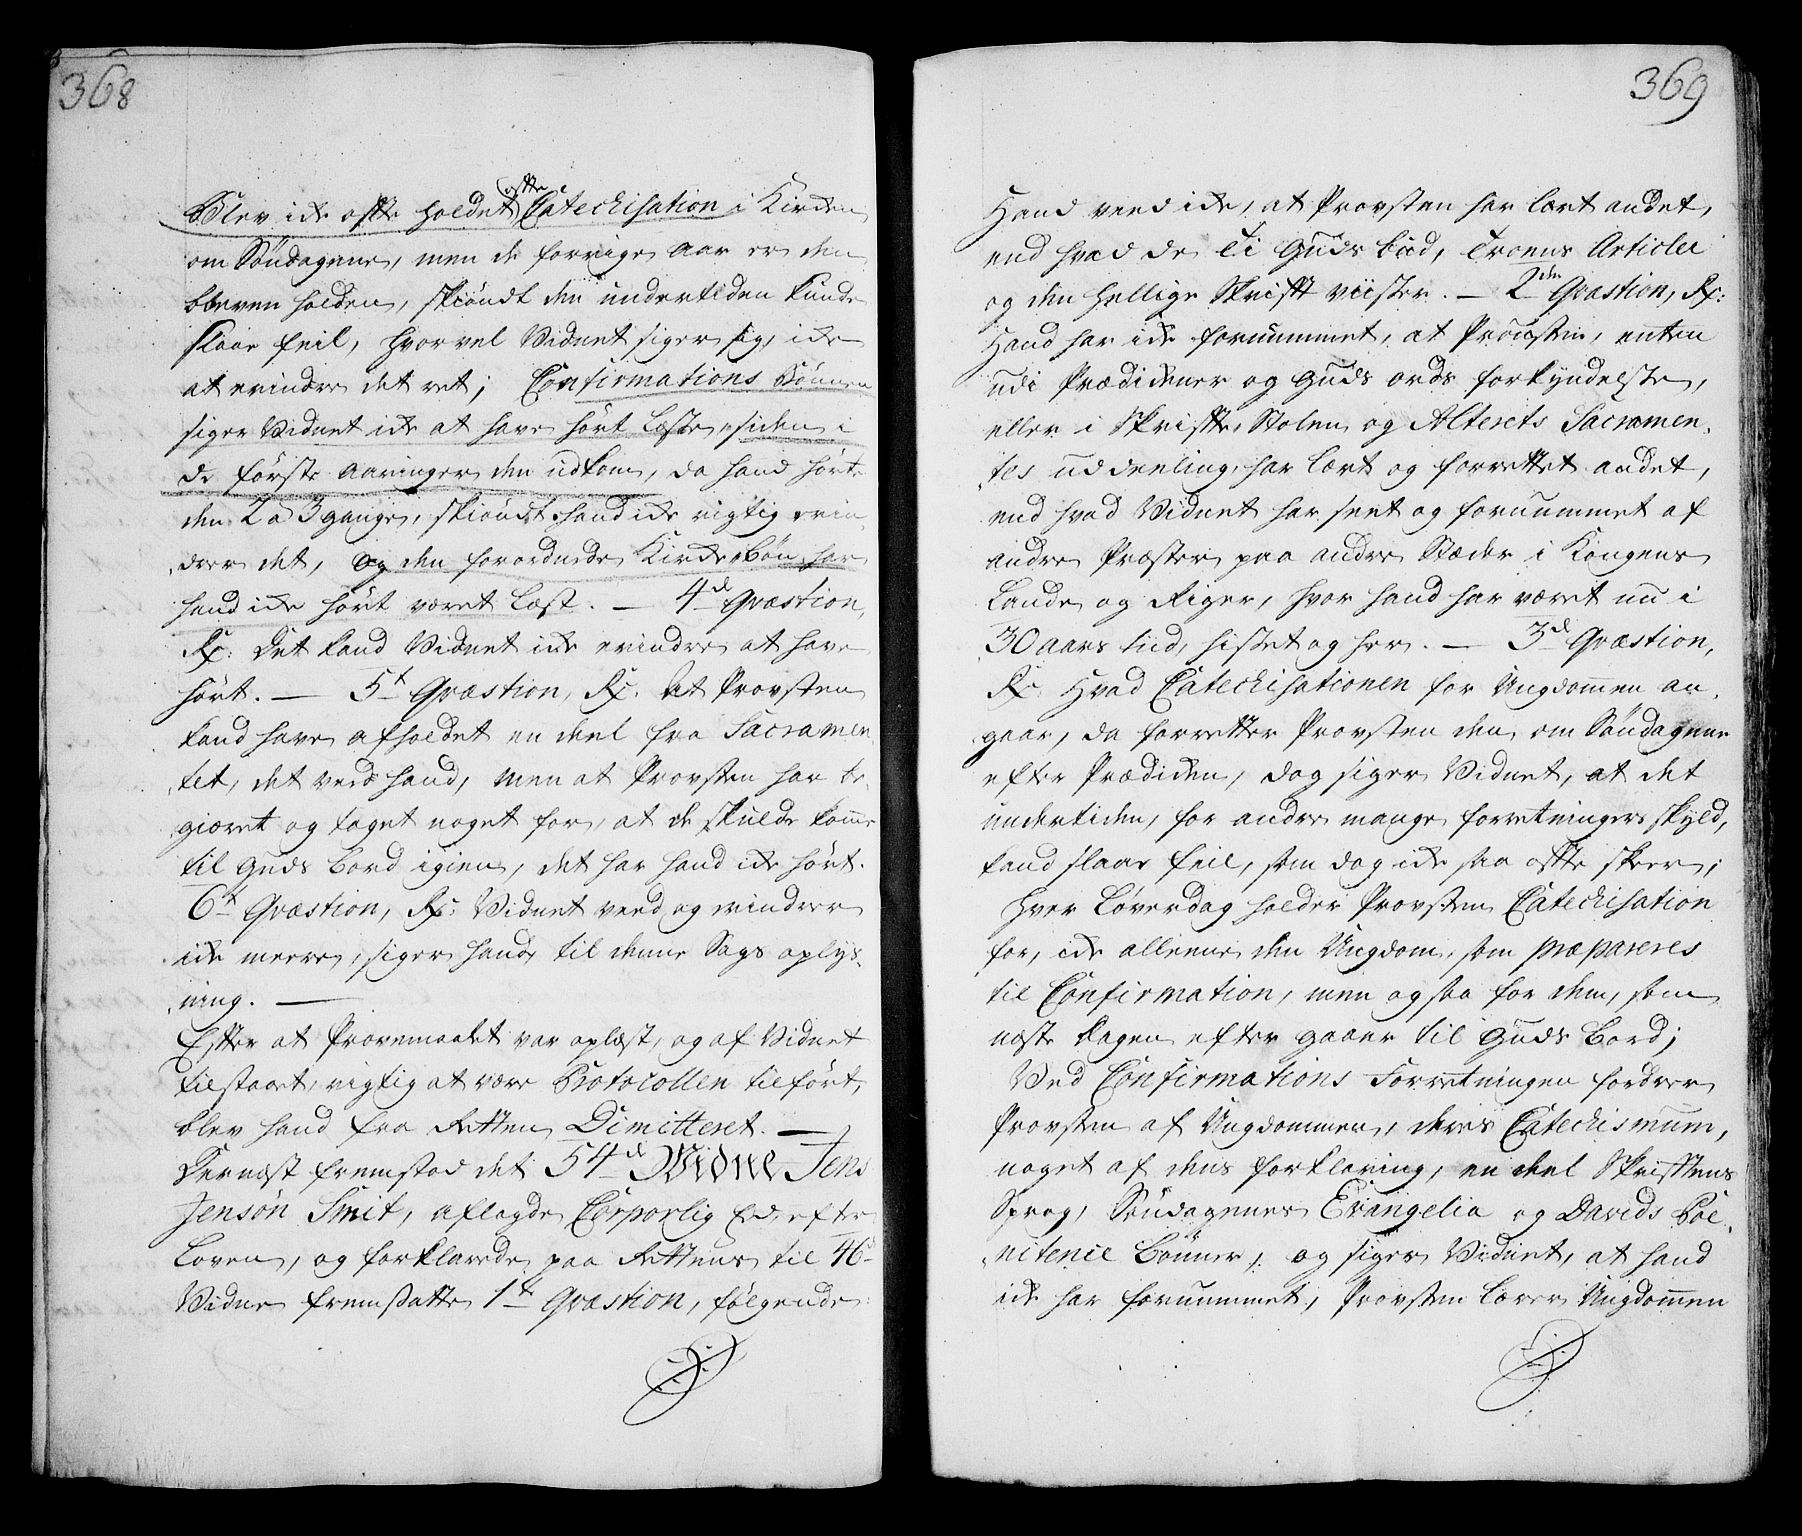 368
Blev icke ofte holdet ofte Catechisation i Kircken
om Søndagene, men de forrige Aar er den
bleven holden, skiøndt den undertiden kunde
slaae feil, hvorvel Vidnet siger sig, icke
at erindre det ret; Confirmations Bønnen
siger Vidnet icke at have hørt læste, siden i
de første Aaringer den udkom, da hand hørte
den 2 a 3 gange, skiøndt hand icke rigtig erin-
drer det, og den forordnede Kircke Bøn har
hand icke hørt været læst. — 4de Qvæstion,
Rx: Det kand Vidnet icke erindre at have
hørt. — 5te Qvæstion, Rx: At Provsten
kand have afholdet en deel fra Sacramen-
tet, det veed hand, men at Provsten har be-
giæret og taget noget for, at de skulde komme
til Guds Bord igien, det har hand icke hørt.
6te Qvæstion, Rx: Vidnet veed og erindrer
icke meere, siger hand, til denne Sags oplys-
ning. —
Efter at Provemaalet var oplæst, og af Vidnet
tilstaaet, rigtig at være Protocollen tilført,
blev hand fra Retten Dimitteret. —
Dernæst fremstod det 54de Vidne Jens
Jensøn Smit, aflagde Corporlig Eed, efter
Loven, og forklarede paa Rettens til 46de
Vidne fremsatte 1te Qvæstion, følgende:
369
Hand veed icke, at Provsten har lært andet,
end hvad de Ti Guds bud, Troens Articler
og den Hellige Skrifft viiser. — 2den Qvæstion, Rx:
Hand har icke fornummet, at Provsten, enten
udi Prædickener og Guds ords forkyndelse,
eller i Skriffte Stolen og Alterets Sacramen-
tes uddeeling, har lært og forrettet andet,
end hvad Vidnet har seet og fornummet af
andre Præster paa andre Stæder i Kongens
Lande og Riger, hvor hand har været nu i
30 aars tiid, hist og her. — 3de Qvæstion,
Rx: Hvad Catechisationen for Ungdommen an-
gaar, da forretter Provsten den om Søndagene
efter Prædicken, dog siger Vidnet, at det
undertiden, for andre mange forretningers skyld,
kand slaae feil, som dog icke saa ofte skeer;
Hver Løverdag holder Provsten Catechisation
for, icke alleene den Ungdom, som præpareres
til Confirmation, men og saa for dem, som
næste Dagen efter gaaer til Guds Bord;
Ved Confirmations Forretningen fordrer
Provsten af Ungdommen, deres Catechismum,
noget af dens forklaring, en deel Skrifftens
Sprog, Søndagenes Evangelia og Davids Poe-
nitence Bønner; og siger Vidnet, at hand
icke har fornummet, Provsten lærer Ungdommen